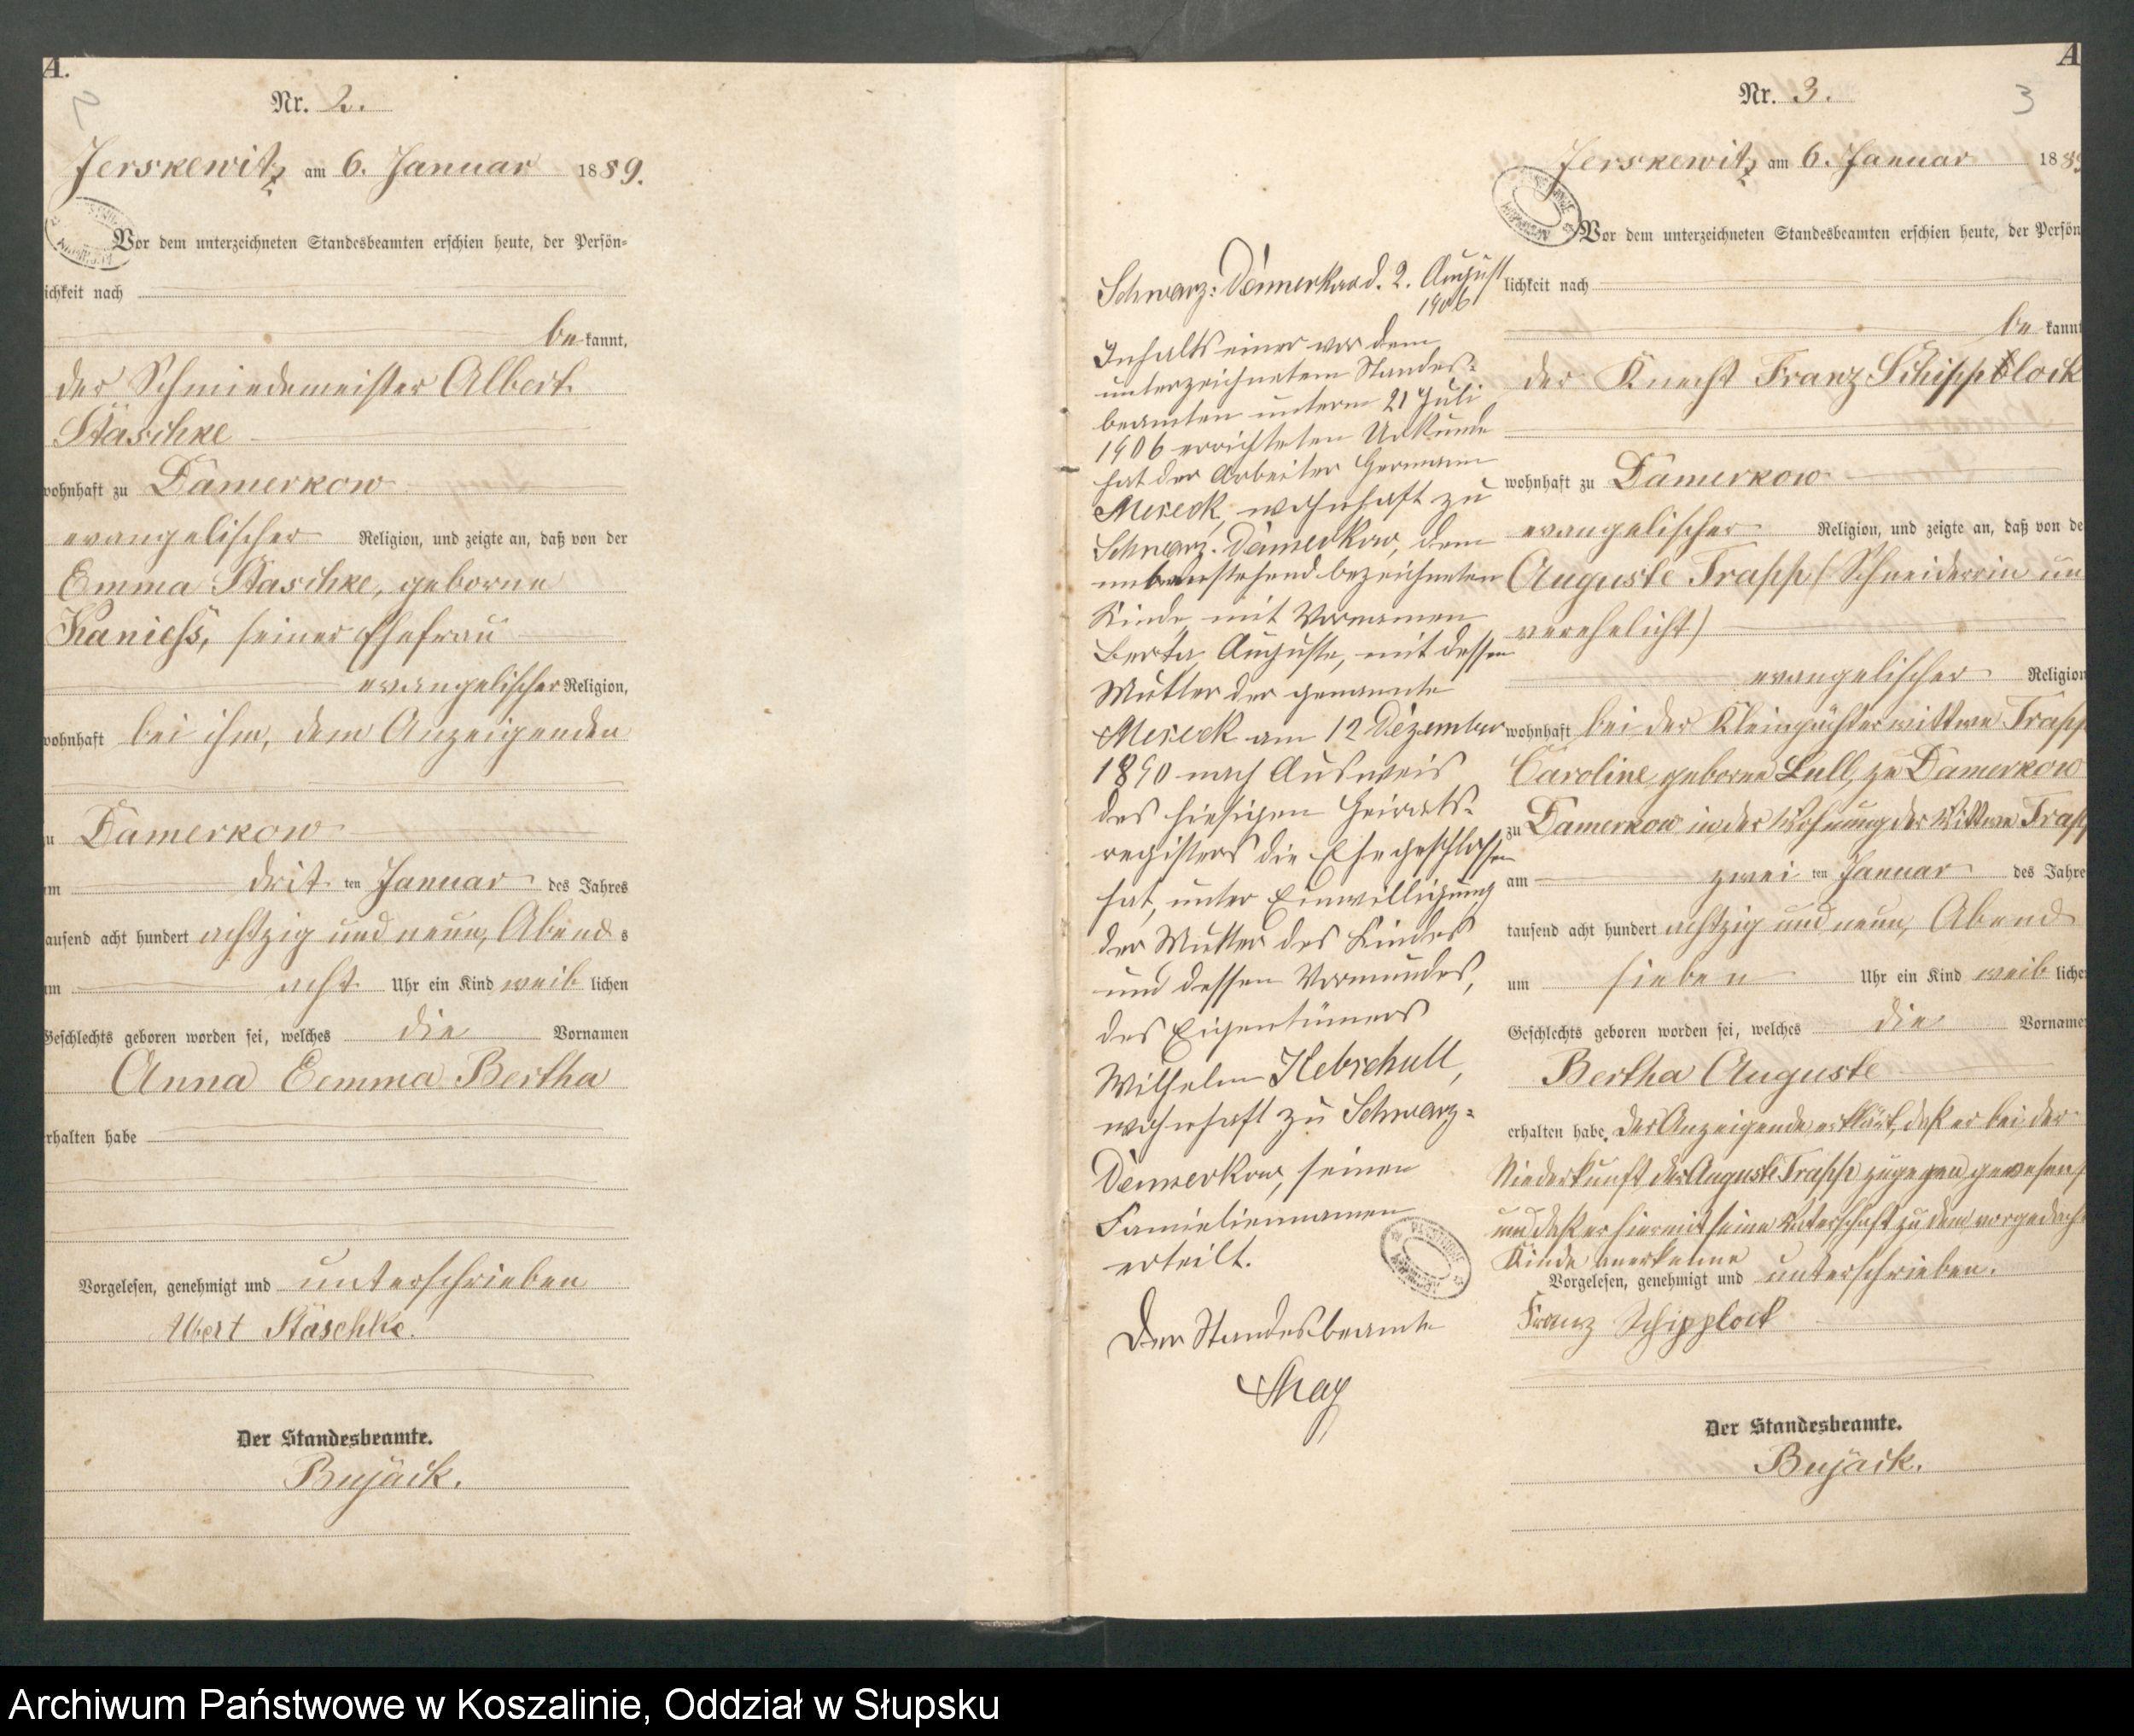 A.
2
Nr. 2.
Jerskewitz am 6. Januar 1889.
Vor dem unterzeichneten Standesbeamten erschien heute, der Persön-
ichkeit nach
be kannt,
der Schmiedemeister Albert
Stäschke
wohnhaft zu Damerkow
evangelischer Religion, und zeigte an, daß von der
Emma Stäschke, geborne
Kaniess, seiner Ehefrau
evangelischer Religion,
wohnhaft bei ihm, dem Anzeigenden
zu Damerkow
am drit ten Januar des Jahres
tausend acht hundert achtzig und neun, Abend s
um acht Uhr ein Kind weib lichen
Geschlechts geboren worden sei, welches die Vornamen
Anna Emma Bertha
erhalten habe
Vorgelesen, genehmigt und unterschrieben
Albert Stäschke.
Der Standesbeamte.
Bujäck.
Schwarz-Damerkow d. 2. August
1906
Inhalts einer vor dem
unterzeichnetem Standes-
beamten unterm 21 Juli
1906 errichteten Urkunde
hat der Arbeiter Hermann
wohnhaft zu
Schwarz-Damerkow, dem
nebenstehend bezeichneten
Kinde mit Vornamen
Berta Auguste, mit dessen
Mutter der genannte
am 12 Dezember
1890 nach Ausweis
des hiesigen Heirats-
registers die Ehe geschlossen
hat, unter Einwilligung
der Mutter des Kindes
und dessen Vormundes,
des Eigentümers
Wilhelm Klebschull,
wohnhaft zu Schwarz-
Damerkow, seinen
Familiennamen
erteilt.
Der Standesbeamte
May
A
3
Nr. 3.
Jerskewitz am 6. Januar 188
Vor dem unterzeichneten Standesbeamten erschien heute, der Persön
lichkeit nach
be kannt
der Knecht Franz Schipplock
wohnhaft zu Damerkow
evangelischer Religion, und zeigte an, daß von de
Auguste Trapp (Schneiderin un
verehelicht)
evangelischer Religion
wohnhaft bei der Kleinpächterwittwe Trapp
Caroline geborne Lull, zu Damerkow
zu Damerkow in der Wohnung der Wittwe Trapp
am zwei ten Januar des Jahre
tausend acht hundert achtzig und neun, Abend
um sieben Uhr ein Kind weib liche
Geschlechts geboren worden sei, welches die Vorname
Bertha Auguste
erhalten habe. Der Anzeigende erklärt, daß er bei der
Niederkunft der Auguste Trapp zugegen gewesen
und daß er hiermit seine Vaterschaft zu dem vorgedach
Kinde anerkenne
Vorgelesen, genehmigt und unterschrieben.
Franz Schipplock
Der Standesbeamte.
Bujäck.
Archiwum Państwowe w Koszalinie, Oddział w Słupsku